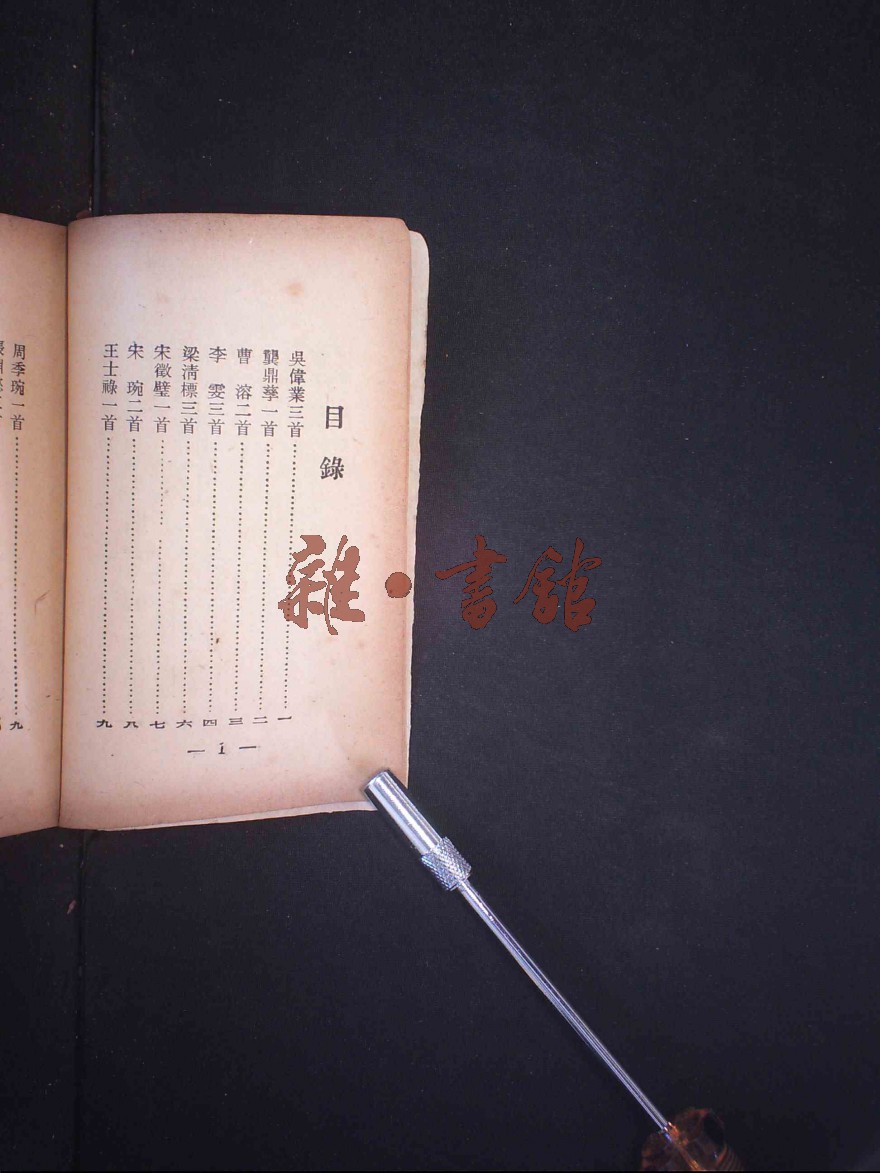 目錄
吳偉業三首………一
龔鼎孳一首………二
曹　溶二首………三
李　雯三首………四
梁清標三首………六
宋徵璧一首………七
宋　琬二首………八
王士祿一首………九
— 1 —
周季琬一首………九
雜·書館